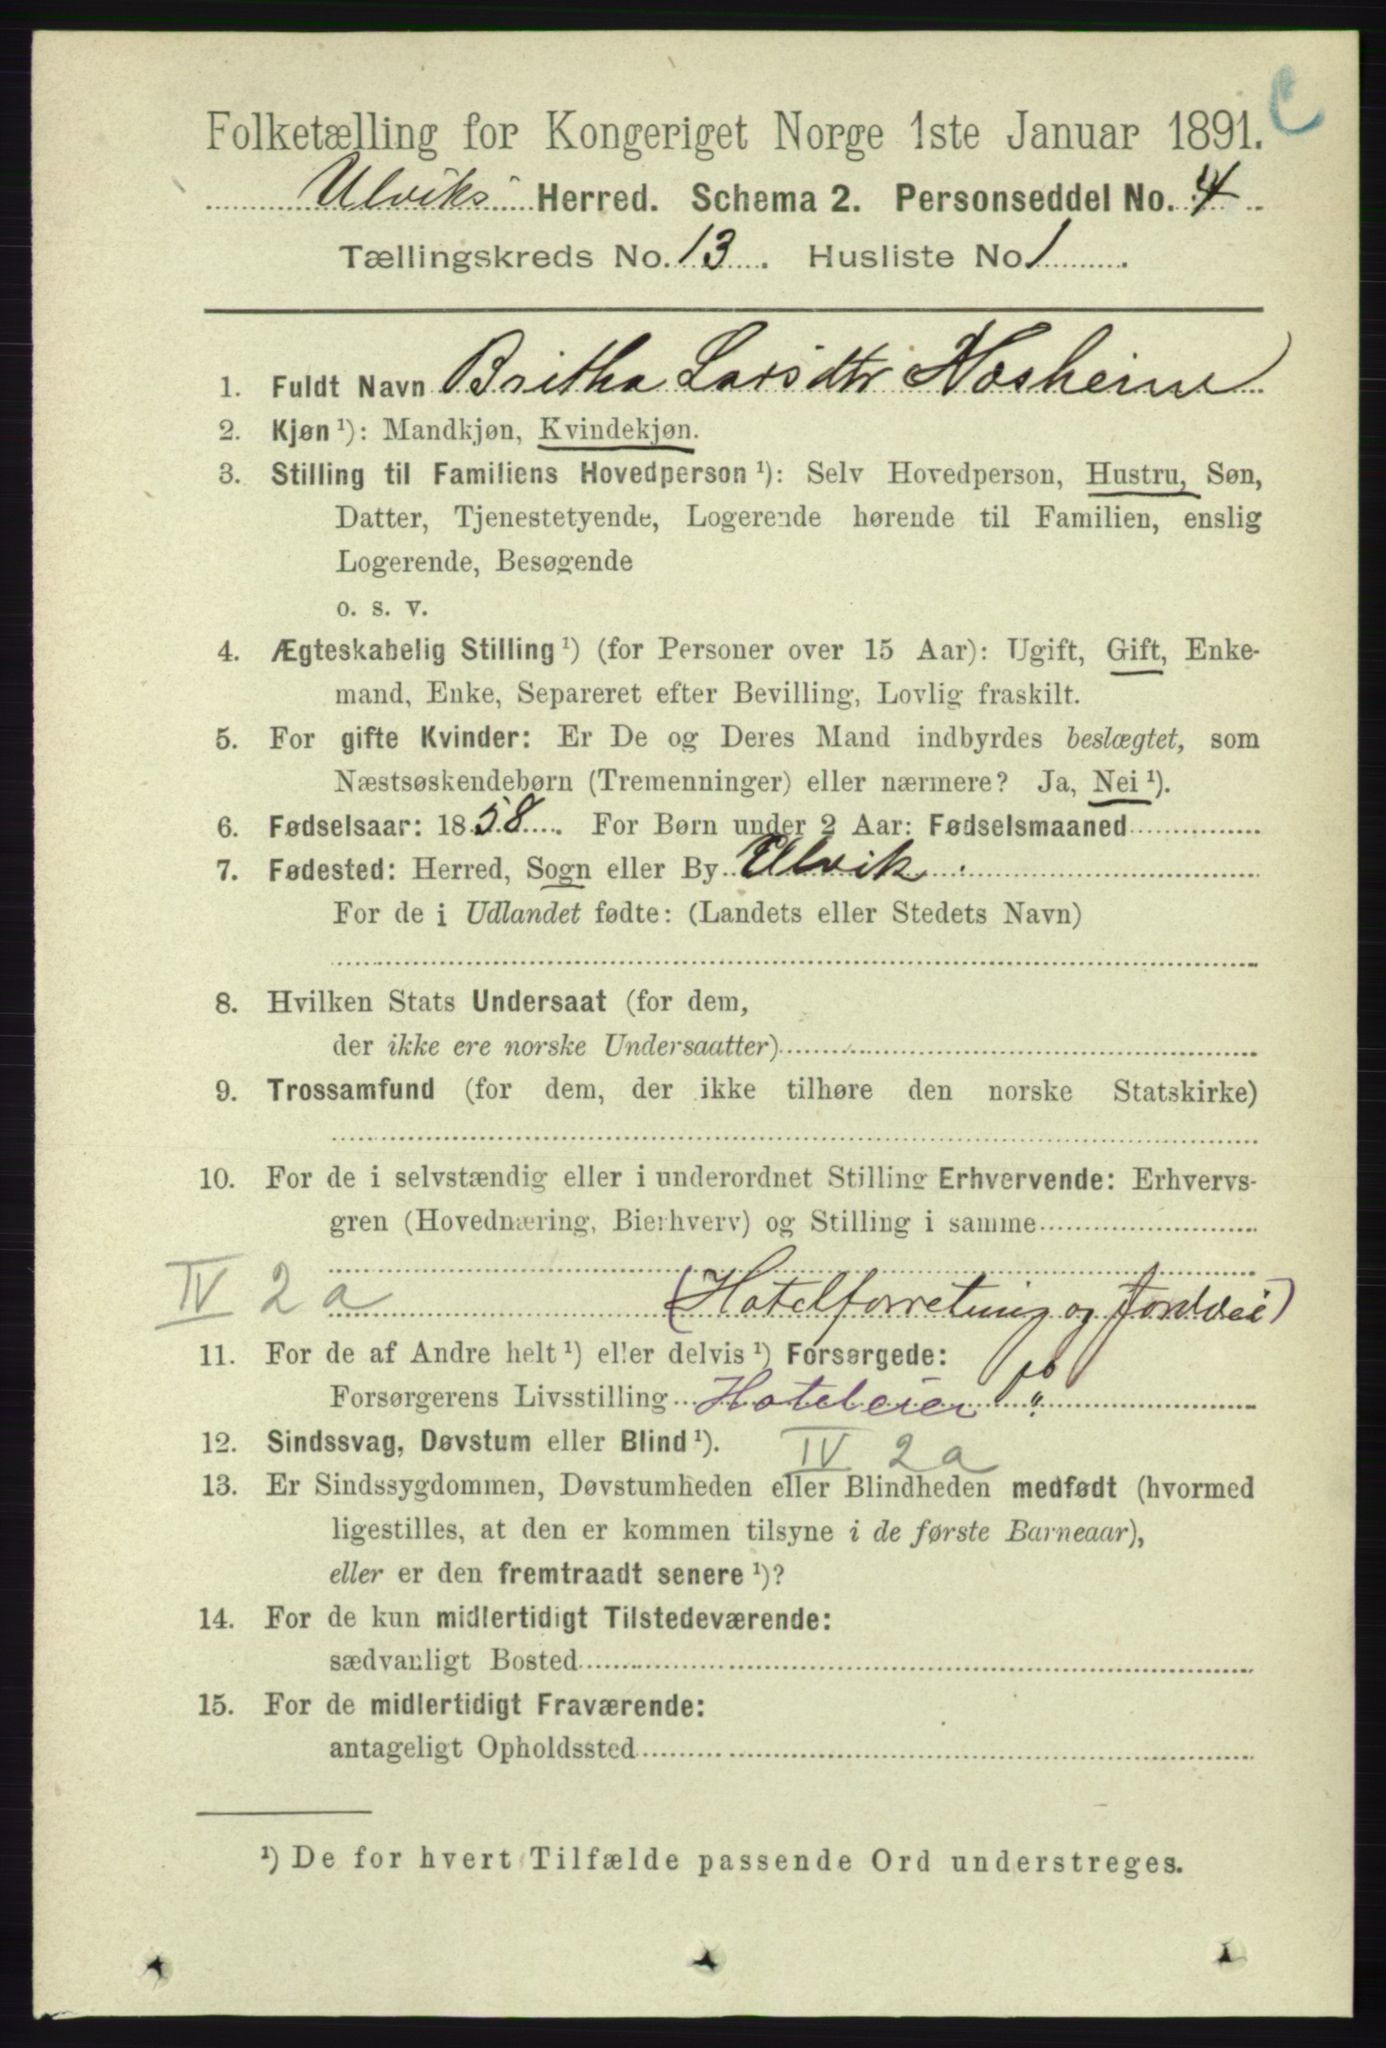 C
Folketælling for Kongeriget Norge 1ste Januar 1891.
Ulviks Herred. Schema 2. Personseddel No. 4
Tællingskreds No. 13. Husliste No 1.
1. Fuldt Navn Britha Larsdtr Næsheim
2. Kjøn ¹): Mandkjøn, Kvindekjøn.
3. Stilling til Familiens Hovedperson ¹): Selv Hovedperson, Hustru, Søn,
Datter, Tjenestetyende, Logerende hørende til Familien, enslig
Logerende, Besøgende
o. s. v.
4. Ægteskabelig Stilling ¹) (for Personer over 15 Aar): Ugift, Gift, Enke-
mand, Enke, Separeret efter Bevilling, Lovlig fraskilt.
5. For gifte Kvinder: Er De og Deres Mand indbyrdes beslægtet, som
Næstsøskendebørn (Tremenninger) eller nærmere? Ja, Nei ¹).
6. Fødselsaar: 1858. For Børn under 2 Aar: Fødselsmaaned
7. Fødested: Herred, Sogn eller By Ulvik
For de i Udlandet fødte: (Landets eller Stedets Navn)
8. Hvilken Stats Undersaat (for dem,
der ikke ere norske Undersaatter)
9. Trossamfund (for dem, der ikke tilhøre den norske Statskirke)
10. For de i selvstændig eller i underordnet Stilling Erhvervende: Erhvervs-
gren (Hovednæring, Bierhverv) og Stilling i samme
IV 2 a (Hotelforretning og
11. For de af Andre helt ¹) eller delvis ¹) Forsørgede:
Forsørgerens Livsstilling Hoteleier
12. Sindssvag, Døvstum eller Blind ¹). IV 2 a
13. Er Sindssygdommen, Døvstumheden eller Blindheden medfødt (hvormed
ligestilles, at den er kommen tilsyne i de første Barneaar),
eller er den fremtraadt senere ¹)?
14. For de kun midlertidigt Tilstedeværende:
sædvanligt Bosted
15. For de midlertidigt Fraværende:
antageligt Opholdssted
¹) De for hvert Tilfælde passende Ord understreges.